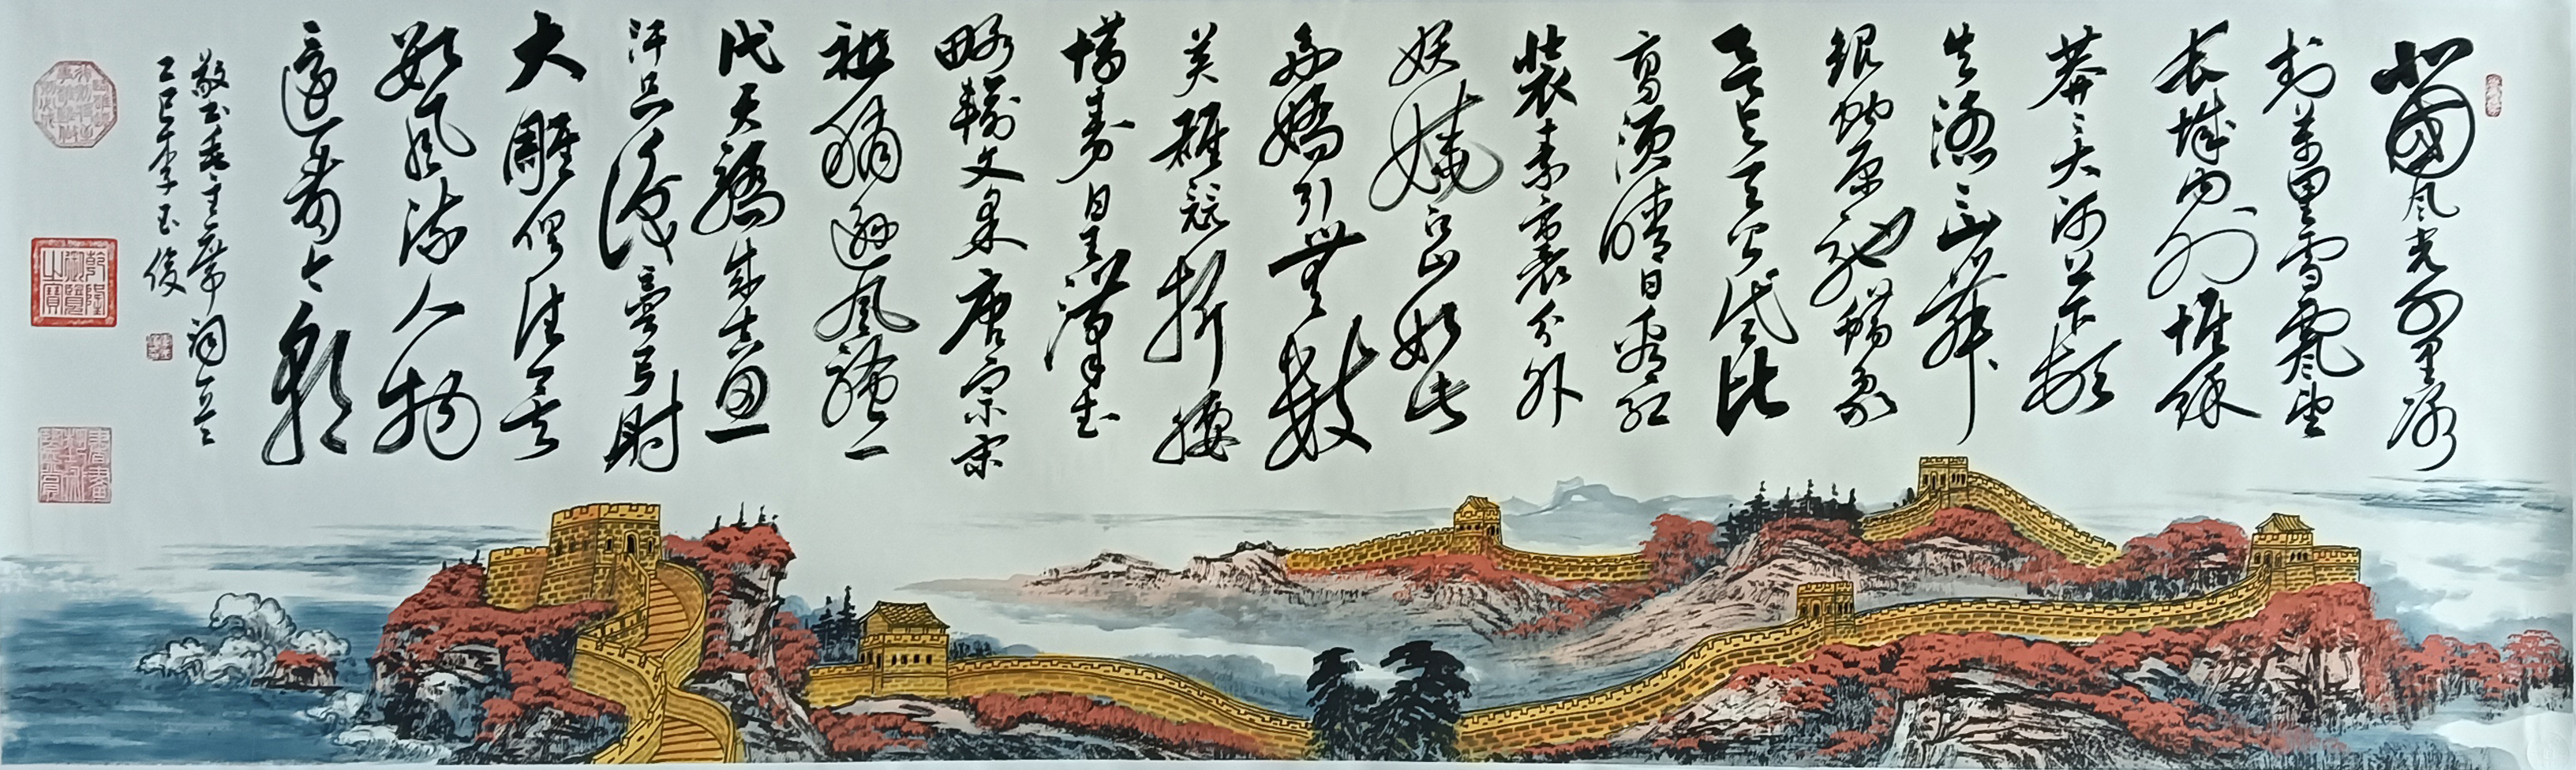 北國风光千里冰
封萬里雪飘望
长城内外惟馀
莽々大河上下頓
失滔々山舞
银蛇原驰蜡象
欲与天公试比
高须晴日看红
装素裹分外
妖娆江山如此
多嬌引無數
英雄竞折腰
惜秦皇漢武
略輸文采唐宗宋
祖稍遜风骚一
代天驕成吉思
汗只識彎弓射
大雕俱往矣
數风流人物
還看今朝
敬书毛主席词
乙巳年李玉俊
乾隆御覽之寶